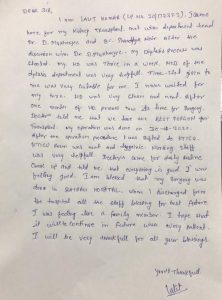 Dear Sir,
I am LALIT KUMAR I came
here for my Kidney Transplant. met with department head
Dr. D. Mukherjee and Dr. after the
discussion with Dr. D. Mukherjee. My Dialysis Process was
started. My HD was Thrice in a week. And of the
dialysis department was very helpful. Time slot given to
me was very suitable for me. I was waited for
my turn. HD unit very clean and neat. After
one month of HD process the time for surgery.
Doctor told me that we have the BEST PERSON for
Transplant. My operation was done on
After the operation procedure I was shifted to
room was neat and hygienic. Nursing staff
was very helpful. Doctors came for daily routine
check up and told me that everything is good I was
feeling good. I am blessed that my surgery was
done in HOSPITAL. When I discharged from
the hospital all the staff blessing for best future
I was feeling like a family member. I hope that
it will be continue in future with every patient.
I will be very thankfull for all your blessings.
Your's Thankfull
Lalit